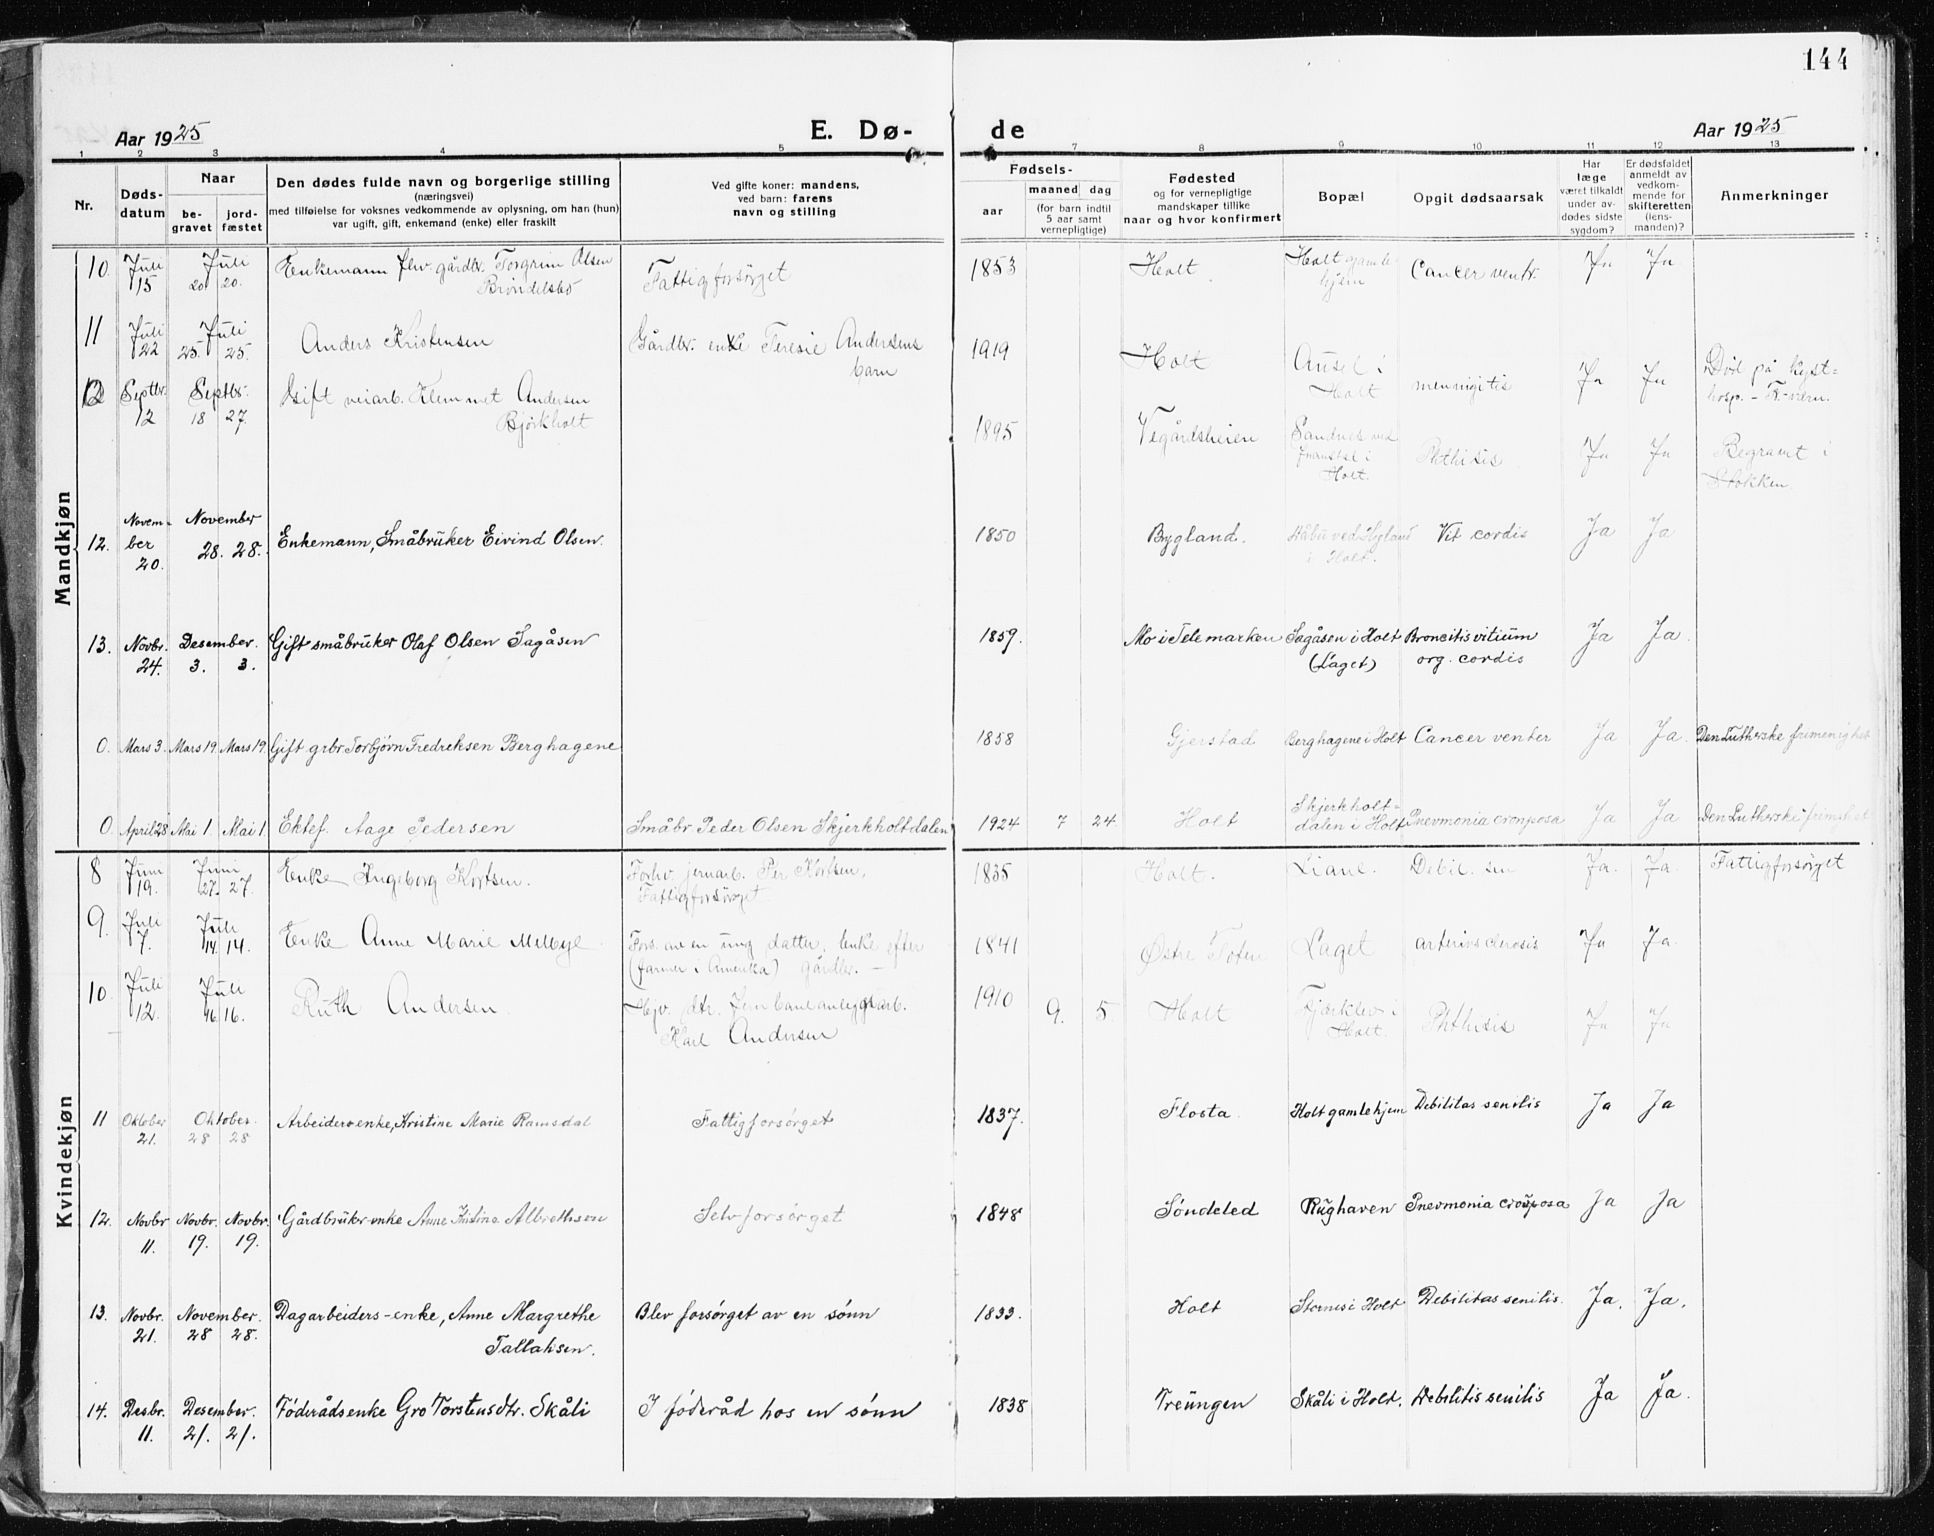 144
Aar 1925
E. Dø-
de
Aar 1925
1 2 3 4 5 7 8 9 10 11 12 13
Nr.
Døds-
datum
Naar
be-
gravet
jord-
fæstet
Den dødes fulde navn og borgerlige stilling
(næringsvei)
med tilføielse for voksnes vedkommende av oplysning, om han (hun)
var ugift, gift, enkemand (enke) eller fraskilt
Ved gifte koner: mandens,
ved barn: farens
navn og stilling
Fødsels-
aar
maaned dag
(for barn indtil
5 aar samt
vernepligtige)
Fødested
og for vernepligtige
mandskaper tillike
naar og hvor konfirmert
Bopæl
Opgit dødsaarsak
Har
læge
været tilkaldt
under av-
dødes sidste
sygdom?
Er dødsfaldet
anmeldt av
vedkom-
mende for
skifteretten
(lens-
manden)?
Anmerkninger
Mandkjøn
10. Juli 15 Juli 20. 20. Enkemann fhv. gårdbr. Torgrim Olsen
Brøndelsbo
Fattigforsørget 1853 Holt Holt gamle
hjem
Cancer ventr. Ja Ja
11 Juli 22 Juli 25. 25. Anders Kristensen Gårdbr. enke Teresie Andersens
barn
1919 Holt Ausel i
Holt
mennigitis Ja Ja Død på kyst=
hosp. –
12 Septbr. 12 Septbr. 18 27. Gift veiarb. Klemmet Andersen
Bjørkholt
1895 Vegårdsheien Sandnes ved
i
Holt.
Phthisis Ja Ja Begravet i
Stokken
12. Novem-
ber
20.
November
28. 28. Enkemann, Småbruker Eivind Olsen. 1850 Bygland. ved
i Holt.
Vit cordis Ja Ja
13. Novbr. 24. Desember. 3. 3. Gift småbruker Olaf Olsen Sagåsen 1859. Mo i Telemarken Sagåsen i Holt
(Laget)
Broncitis vitium
org. cordis
Ja Ja.
0. Mars 3. Mars 19. Mars 19. Gift grbr Torbjørn Fredreksen Berghagene 1858 Gjerstad Berghagene i Holt Cancer venter Ja Ja. Den Lutherske frimenighet
0. April 28 Mai 1. Mai 1. Ektef. Aage Pedersen Småbr Peder Olsen Skjerkholtdalen 1924 7 24 Holt Skjerkholt=
dalen i Holt
Pnevmonia cronposa Ja Ja Den Lutherske
Kvindekjøn
8 Juni 19. Juni 27. 27. Enke Ingeborg Kortsen. Forhv. jernarb. Per Kortsen,
Fattigforsørget
1835 Holt. Liane. Debil. sen Ja. Ja. Fattigforsørget
9. Juli 7. Juli 14. 14. Enke Anne Marie Melbye Fors. av en ung datter, enke efter
(farmer i Amerika) gårdbr. –
1841 Østre Toten Laget arterioscelerosis Ja Ja.
10. Juli 12. Juli 16 16. Ruth Andersen. Hjv. dtr. Jernbaneanleggsarb.
Karl Andersen
1910 9. 5. Holt Bjerklev i
Holt.
Phthisis Ja Ja
11 Oktober 21. Oktober. 28 28 Arbeidersenke, Kristine Marie Ramsdal Fattigforsørget 1837. Flosta. Holt gamlehjem Debilitas senilis Ja Ja
12. Novbr 11. Novbr. 19. Novbr. 19. Gårdbrukr-enke Anne Kristine Albrethsen Selvforsørget 1848 Søndeled Rughaven Pnevmonia crouposa Ja Ja
13. Novbr. 21. November. 28 28. Dagarbeiders-enke, Anne Margrethe
Tallaksen.
Blev forsørget av en sønn 1833. Holt Stornes i Holt Debilitas senilis. Ja. Ja.
14. Desbr. 11. Desember. 21. 21. Føderådsenke Gro Torstensdtr. Skåli I føderåd hos en sønn 1838 Treungen Skåli i Holt. Debilitis senilis Ja Ja.